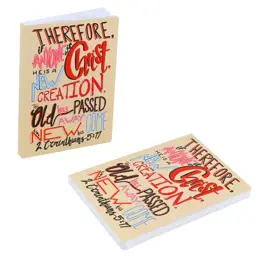 THEREFORE,
if ANYONE is in Christ,
HE IS A
NEW
CREATION.
Old HAS PASSED
AWAY
NEW HAS COME
2 Corinthians 5:17
THEREFORE,
if ANYONE is in Christ,
HE IS A
NEW
CREATION.
Old HAS PASSED
AWAY
NEW HAS COME
2 Corinthians 5:17